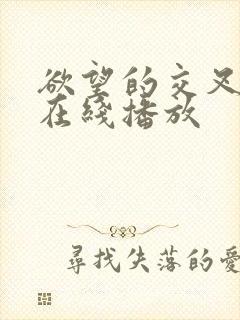 欲望的交叉
在线播放
尋找失落的愛